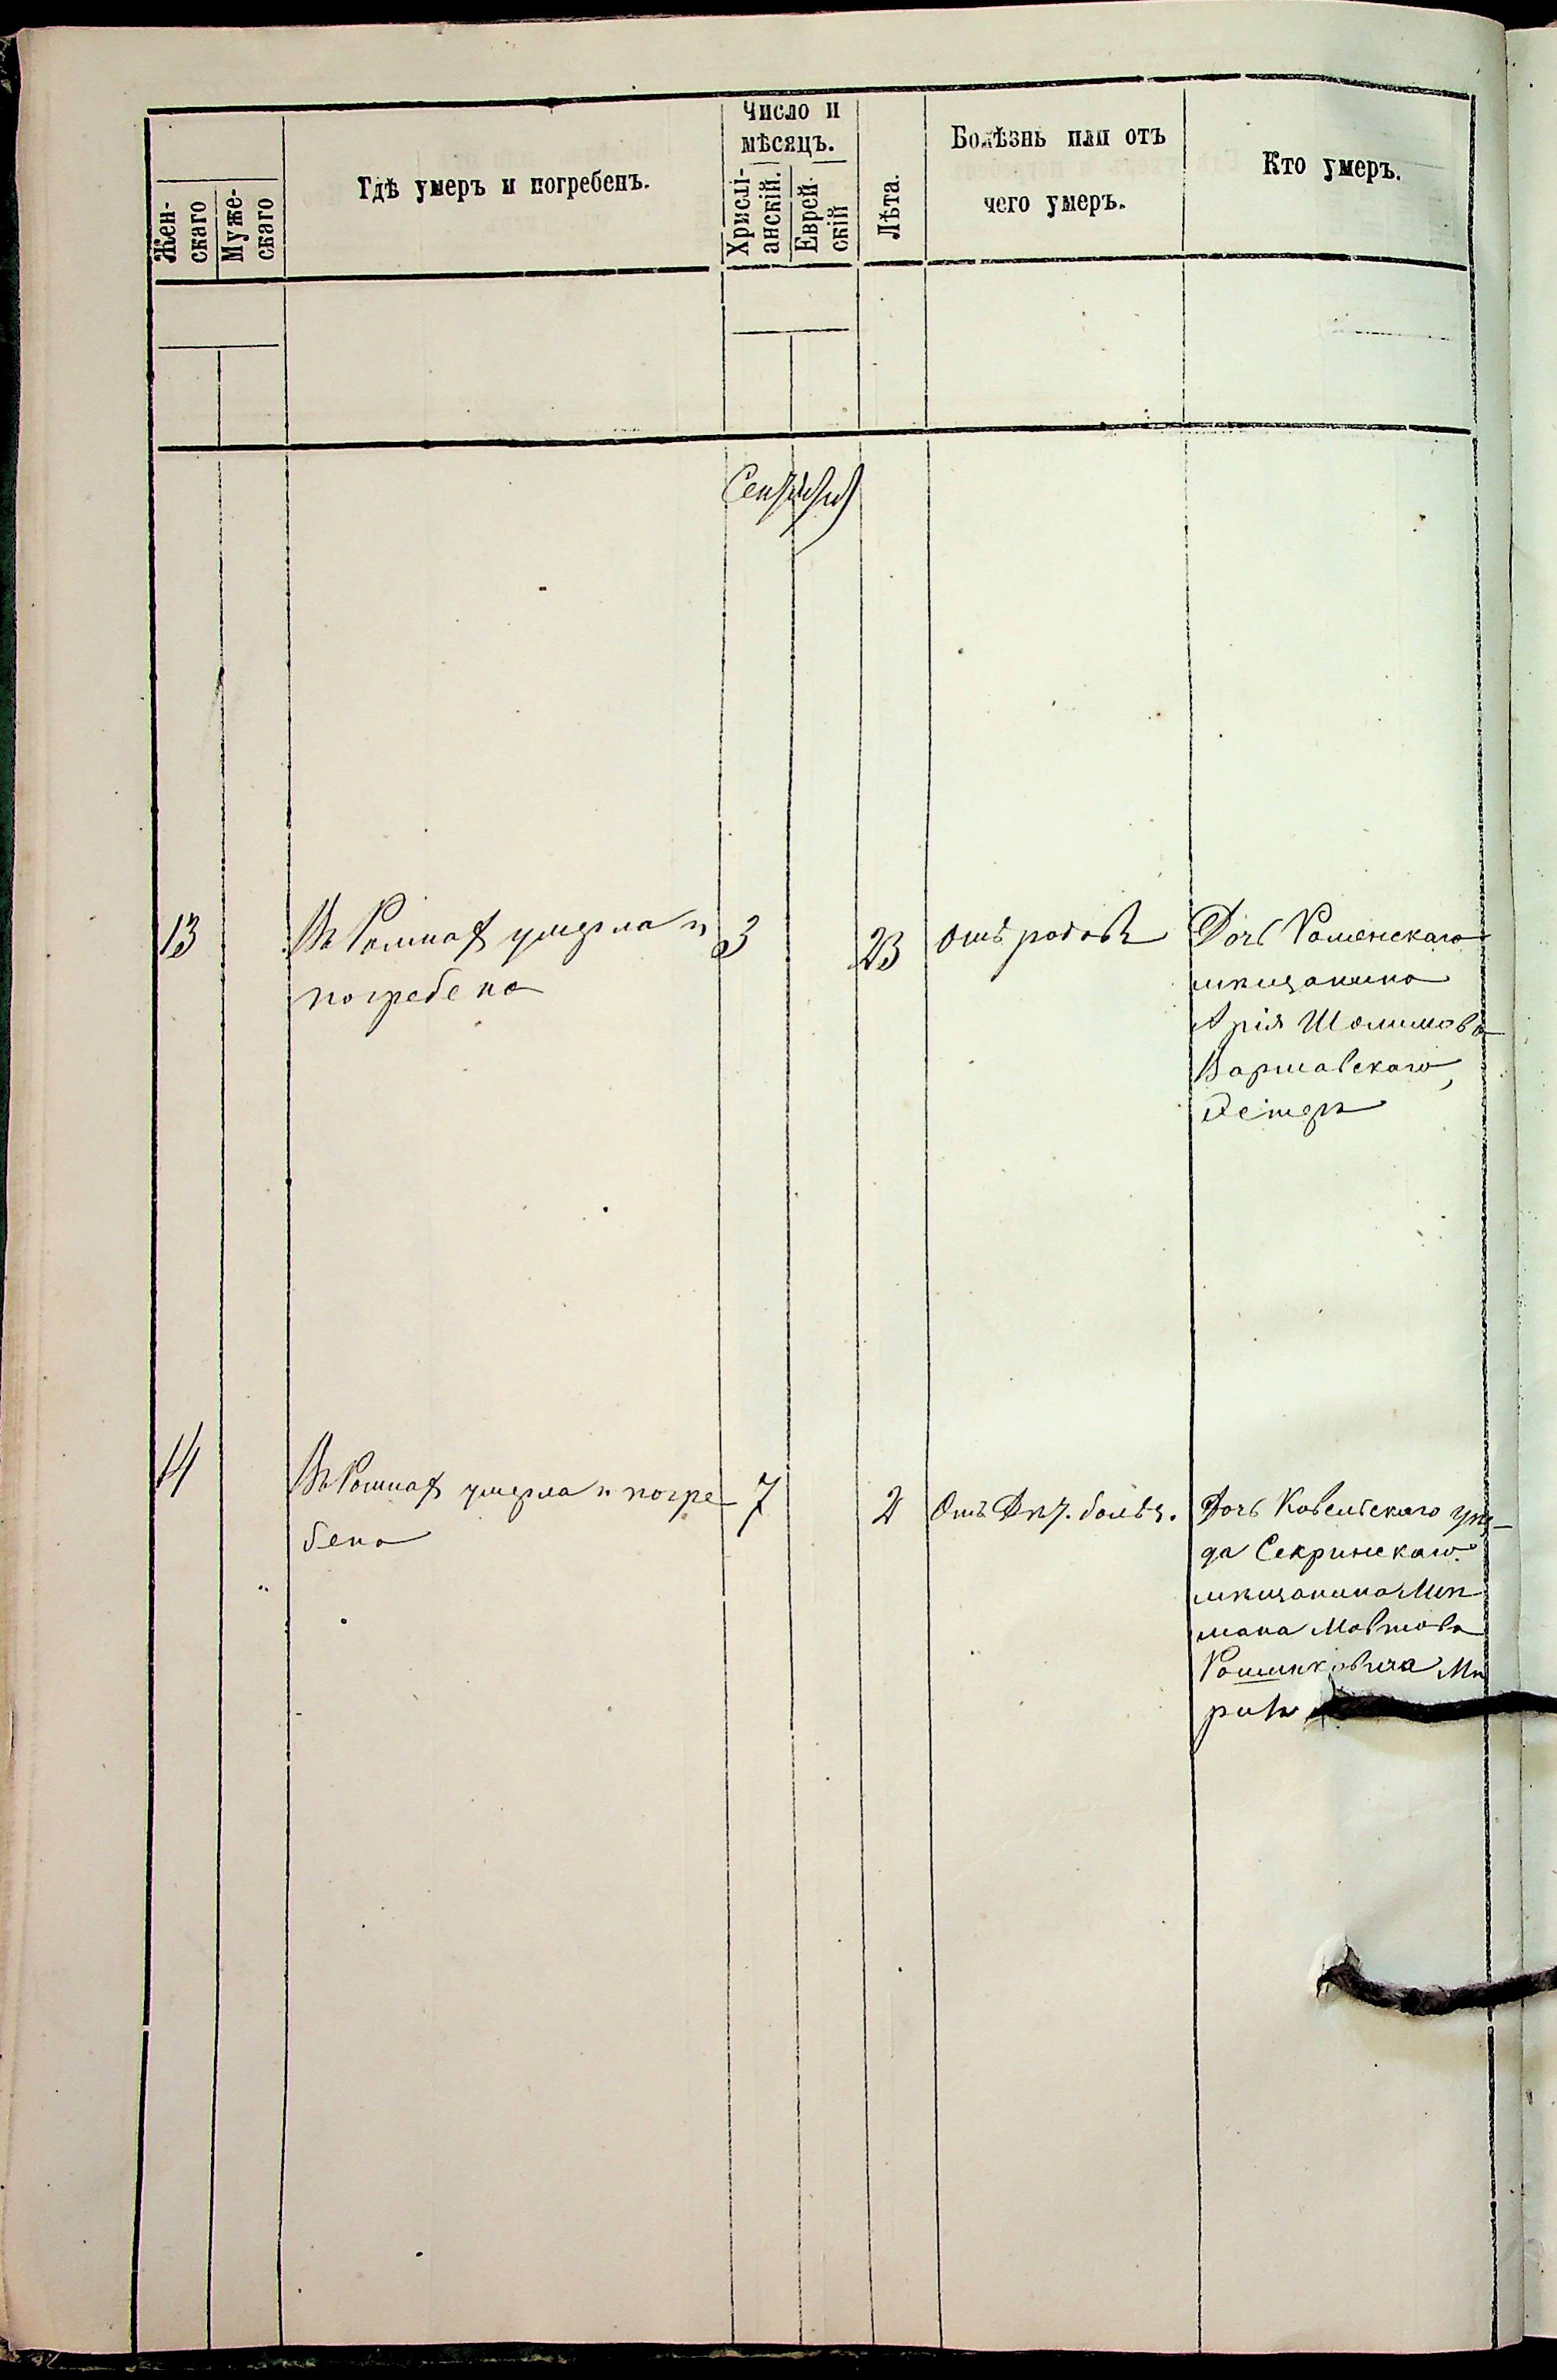 Жен-
скаго
Муже-
скаго
Гдѣ умеръ и погребенъ.
Число и
мѣсяцъ.
Христі-
анскій.
Еврей-
скій
Лѣта.
Болѣзнь или отъ
чего умеръ.
Кто умеръ.
13
Въ Ромнах умерла и
погребена
3
23
отъ родовъ
Дочь Роменскаго
мѣщанина
Арія Шолимова
Варшавскаго,
Эстеръ
14
Въ Ромнах умерла и погре-
бена
7
2
Отъ болѣз.
Дочь Ковельскаго уѣз-
да Секринскаго
мѣщанина
Мовшова